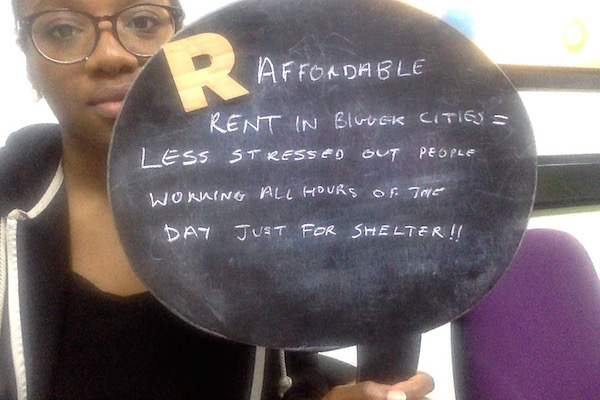 R AFFORDABLE
RENT IN BIGGER CITIES =
LESS STRESSED OUT PEOPLE
WORKING ALL HOURS OF THE
DAY JUST FOR SHELTER!!